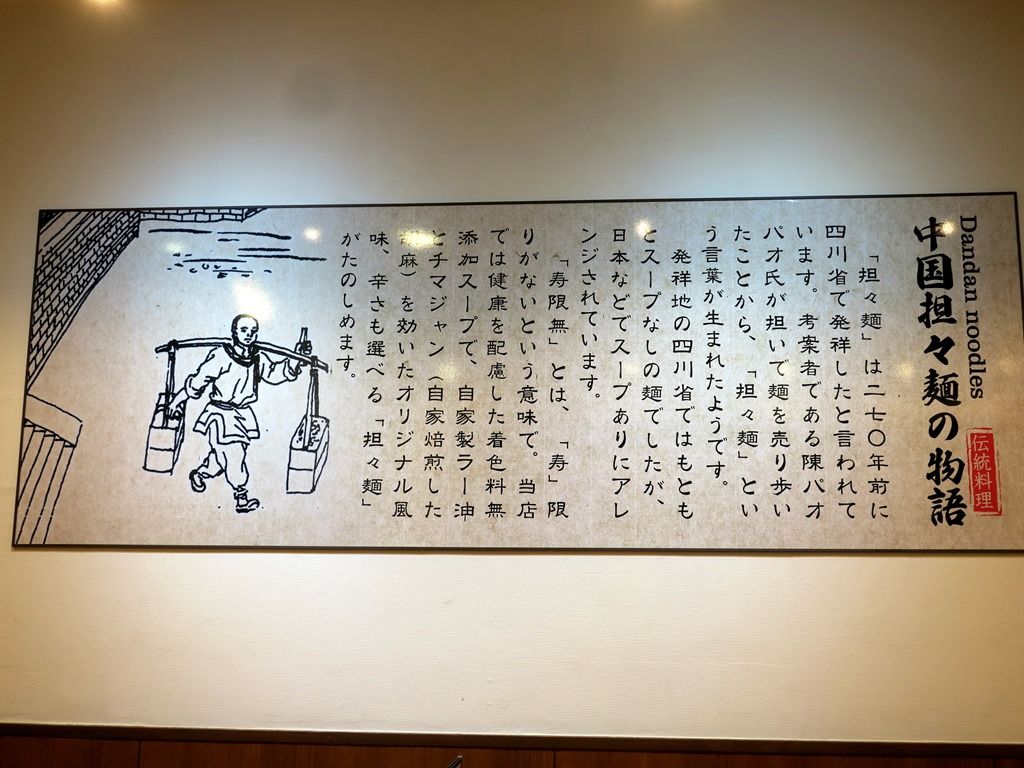 Dandan noodles
伝統料理
中国担々麺の物語
「担々麺」は二七〇年前に
四川省で発祥したと言われて
います。考案者である陳パオ
パオ氏が担いで麺を売り歩い
たことから、「担々麺」とい
う言葉が生まれたようです。
発祥地の四川省ではもとも
とスープなしの麺でしたが、
日本などでスープありにアレ
ンジされています。
「寿限無」とは、「寿」限
りがないという意味で。当店
では健康を配慮した着色料無
添加スープで、自家製ラー油
とチマジャン（自家焙煎した
胡麻）を効いたオリジナル風
味、辛さも選べる「担々麺」
がたのしめます。